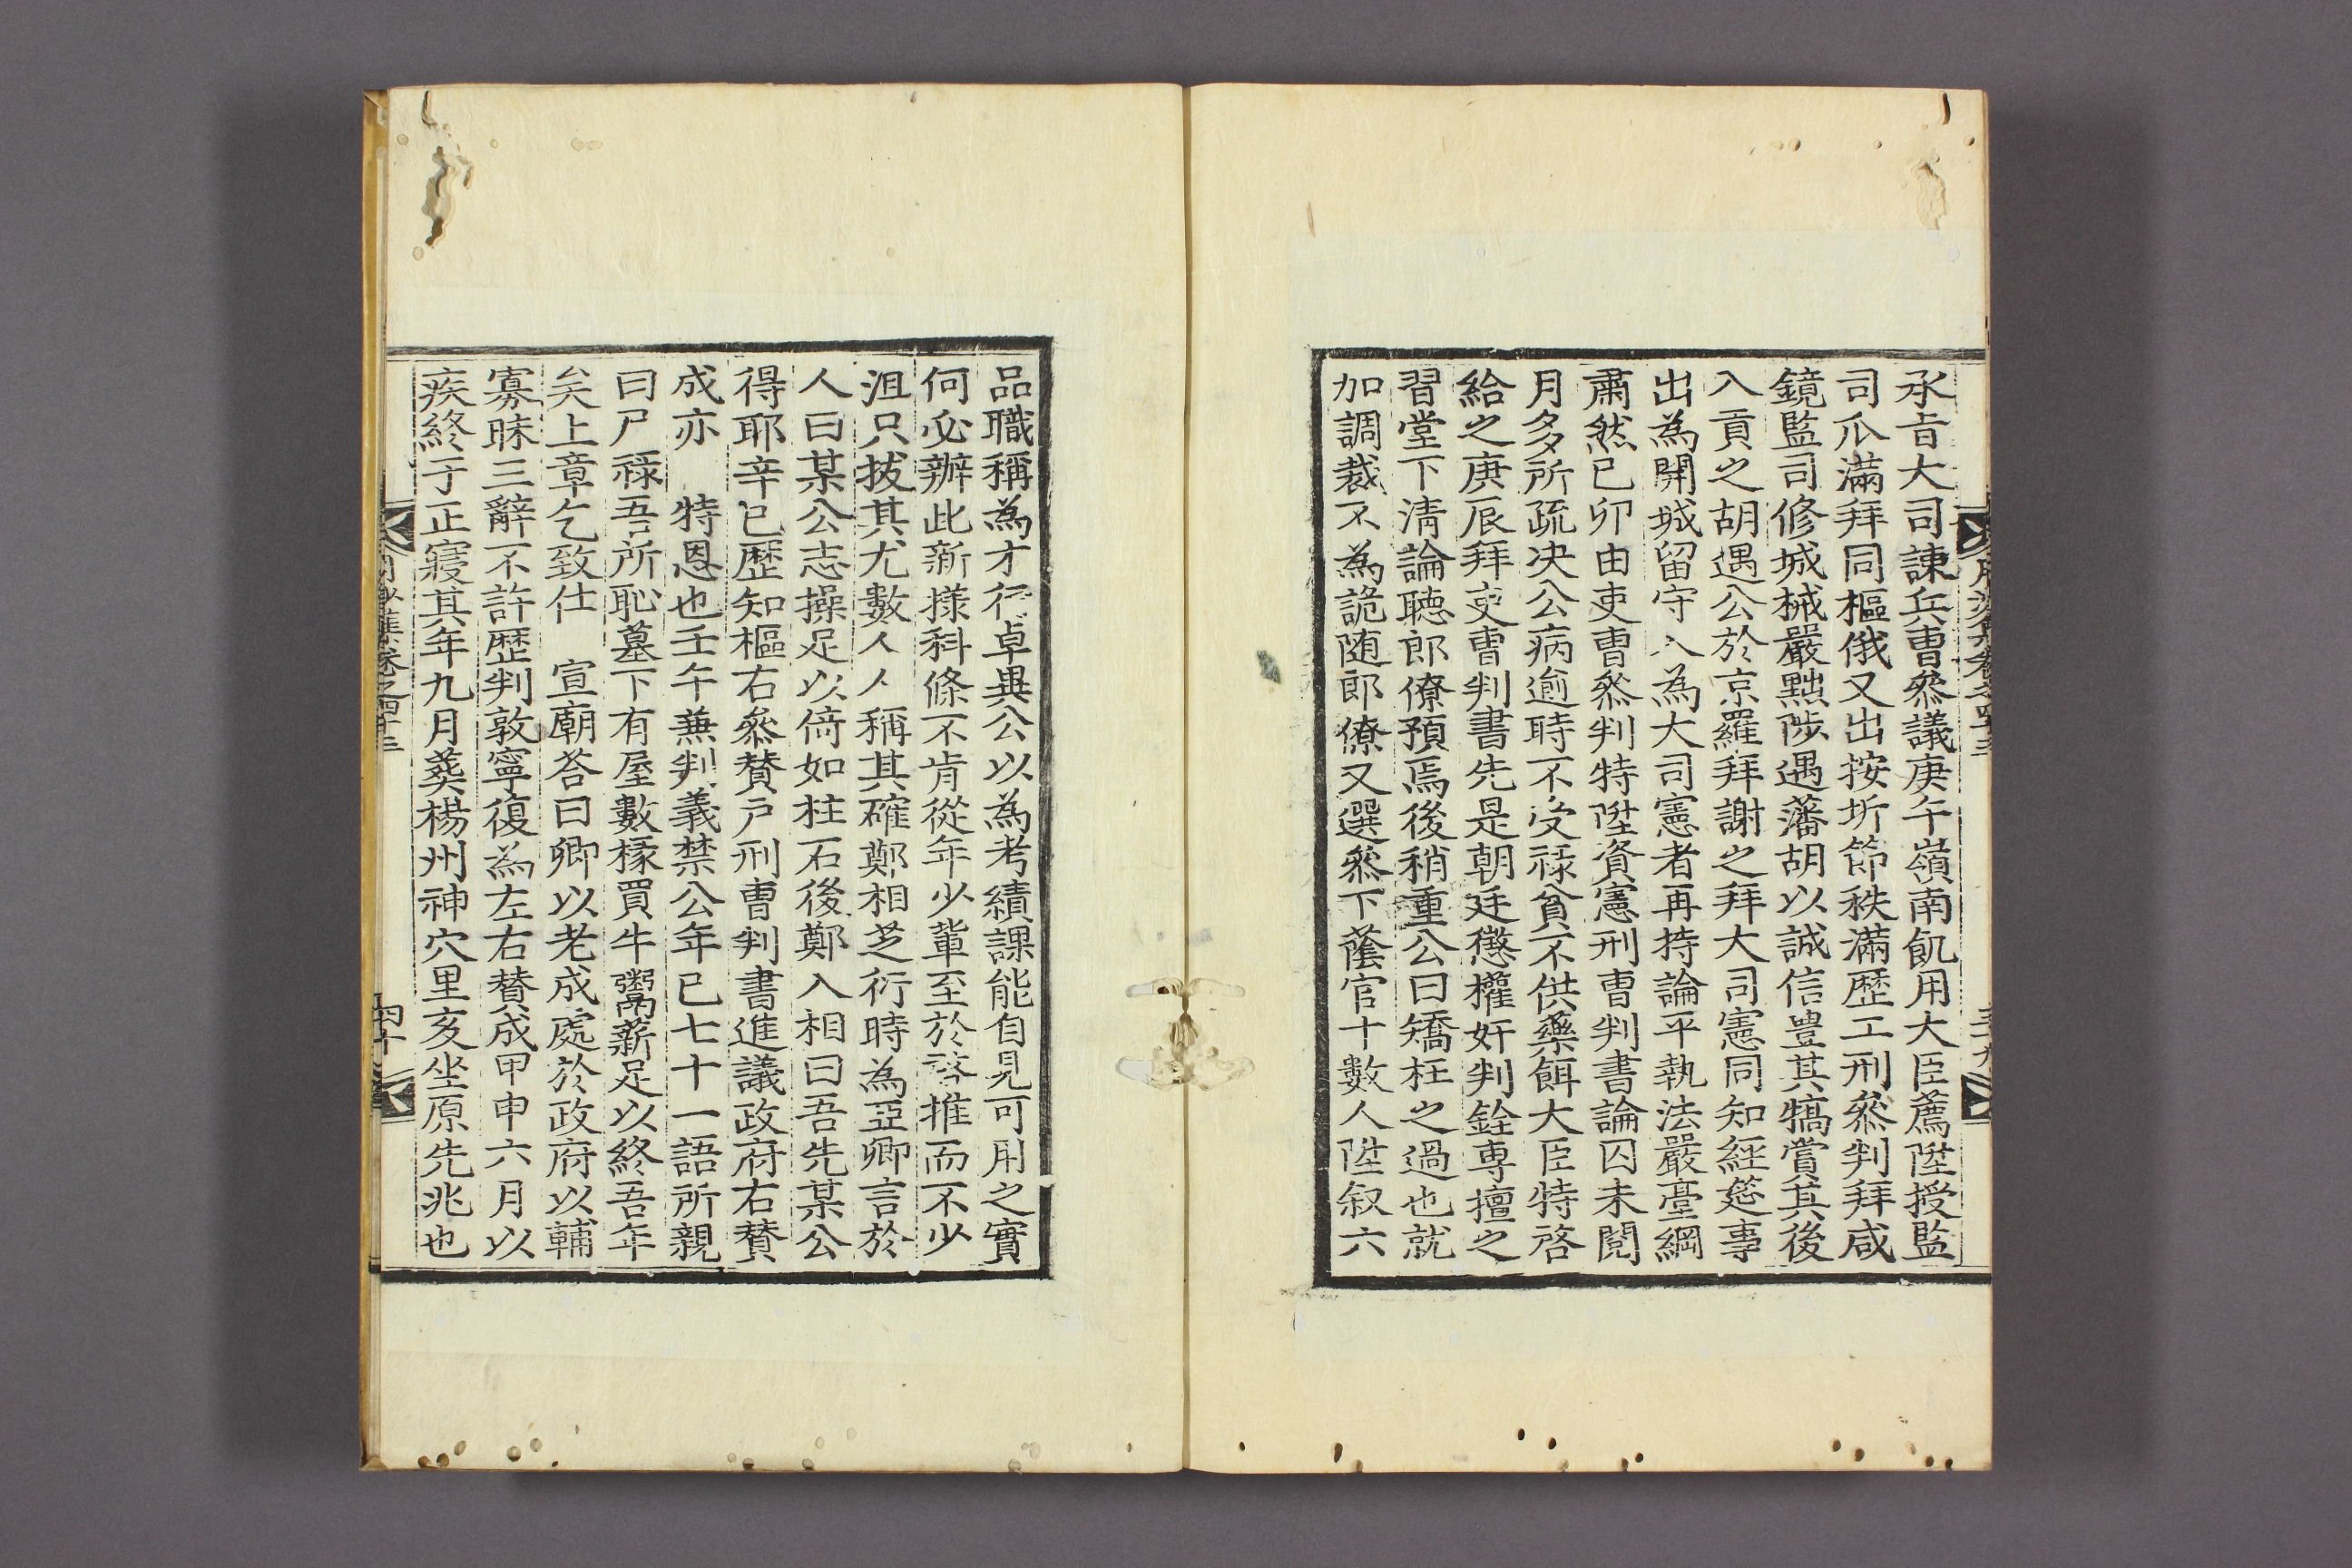 承旨大司諫兵曹叅議庚午嶺南飢用大臣薦陞授監
司瓜滿拜同樞俄又出按圻節秩滿歷工刑叅判拜咸
鏡監司修城械嚴黜陟遇藩胡以誠信豊其犒賞其後
入貢之胡遇公於京羅拜謝之拜大司憲同知經筵事
出為開城留守入為大司憲者再持論平執法嚴臺綱
肅然己卯由吏曹叅判特陞資憲刑曹判書論囚未閱
月多所疏决公病逾時不受祿貧不供藥餌大臣特啓
給之庚辰拜吏曹判書先是朝廷懲權奸判銓專擅之
習堂下淸論聽郎僚預焉後稍重公曰矯枉之過也就
加調裁不為詭随郎僚又選叅下蔭官十數人陞叙六
品職稱為才行卓異公以為考績課能自見可用之實
何必辦此新㨾科條不肯從年少軰至於啓推而不少
沮只拔其尤數人人稱其確鄭相芝衍時為亞卿言於
人曰某公志操足以倚如柱石後鄭入相曰吾先某公
得耶辛巳歷知樞右叅賛戶刑曹判書進議政府右賛
成亦　特恩也壬午兼判義禁公年已七十一語所親
曰尸祿吾所恥墓下有屋數椽買牛鬻薪足以終吾年
矣上章乞致仕　宣廟答曰卿以老成處於政府以輔
寡昧三辭不許歷判敦寧復為左右賛成甲申六月以
疾終于正寢其年九月葬楊州神穴里亥坐原先兆也
月沙集卷之四十三
四十